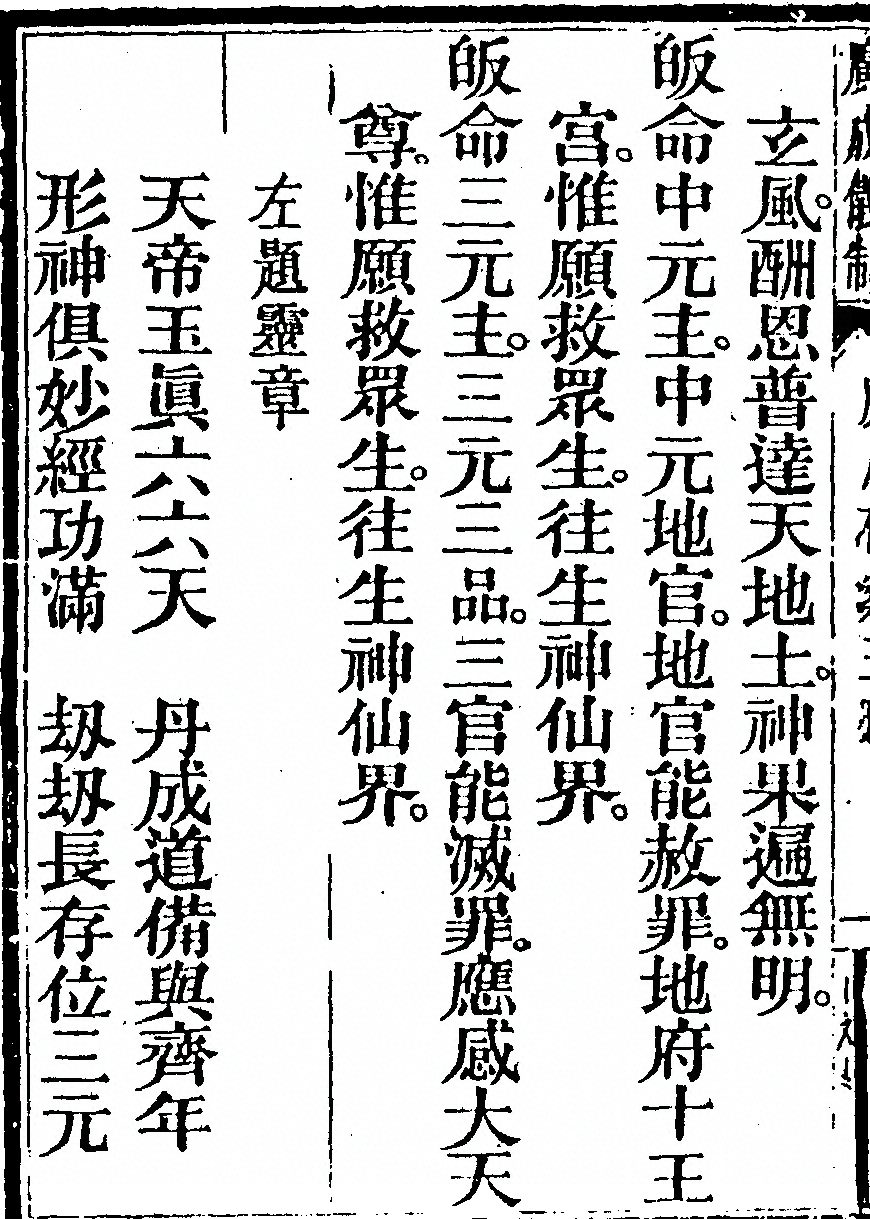 廣成儀制
玄風。酬恩普達天地土。神果遍無明。
皈命中元主。中元地官。地官能赦罪。地府十王
宮。惟願救眾生。往生神仙界。
皈命三元主。三元三品。三官能滅罪。應感大天
尊。惟願救眾生。往生神仙界。
左題靈章
天帝玉眞六六天　丹成道備與齊年
形神俱妙經功滿　刼刼長存位三元